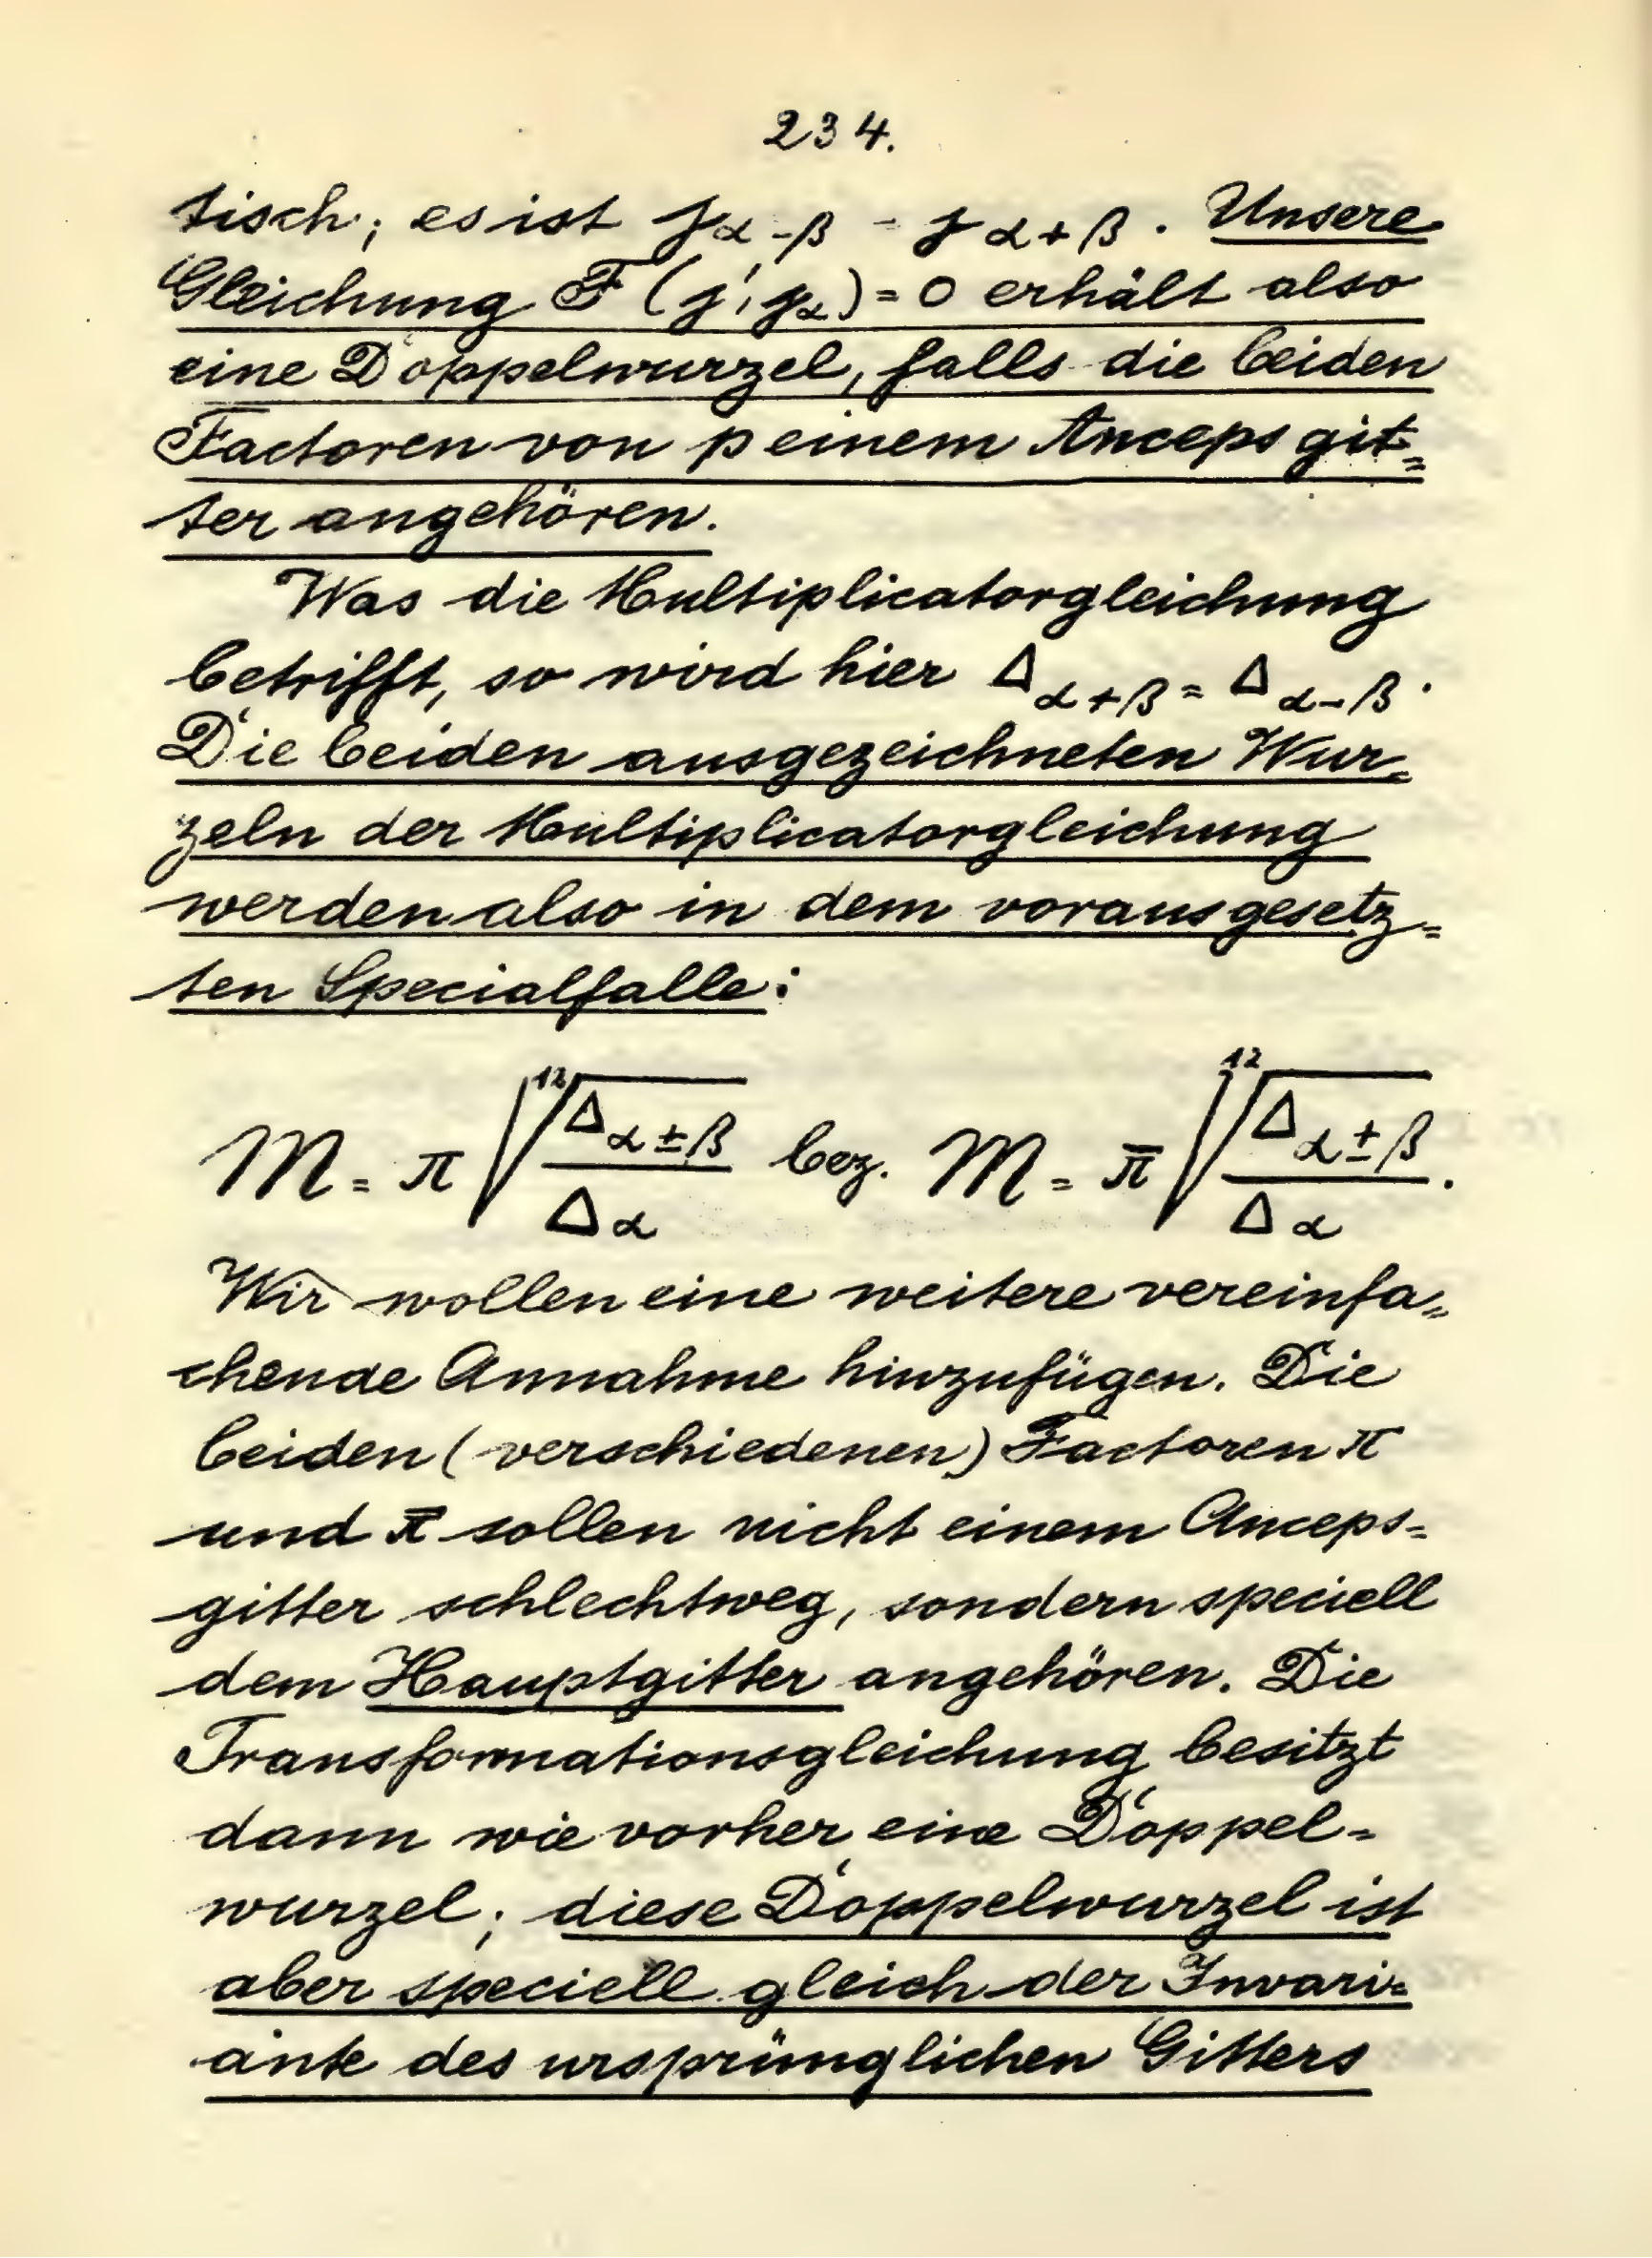 234.
tisch; es ist j α-β = j α+β. Unsere
Gleichung F (j', jα) = 0 erhält also
eine Doppelwurzel, falls die beiden
Factoren von p einem Ancepsgit=
ter angehören.
Was die Multiplicatorgleichung
betrifft, so wird hier Δ α+β = Δ α-β.
Die beiden ausgezeichneten Wur=
zeln der Multiplicatorgleichung
werden also in dem vorausgesetz=
ten Specialfalle:
M = π √12 Δ α±β / Δ α bez. M = π̄ √12 Δ α±β / Δ α.
Wir wollen eine weitere vereinfa=
chende Annahme hinzufügen. Die
beiden (verschiedenen) Factoren π
und π̄ sollen nicht einem Anceps=
gitter schlechtweg, sondern speciell
dem Hauptgitter angehören. Die
Transformationsgleichung besitzt
dann wie vorher eine Doppel=
wurzel; diese Doppelwurzel ist
aber speciell gleich der Invari=
ante des ursprünglichen Gitters